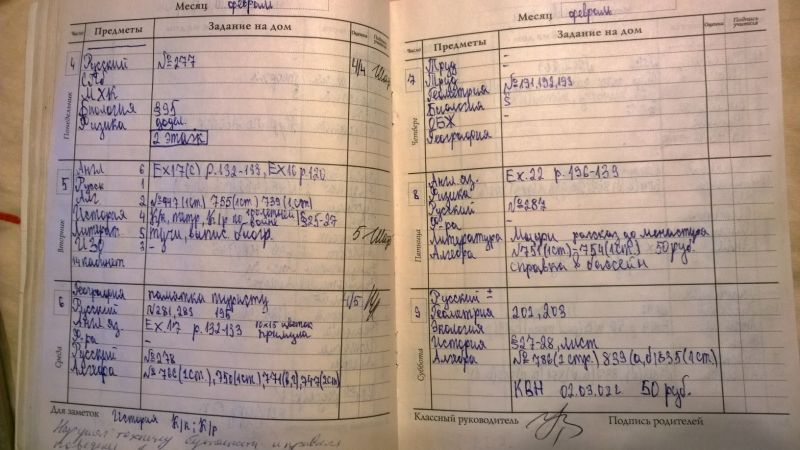 Месяц февраль
Число Предметы Задание на дом Оценка Подпись учителя
Понедельник 4
Русский №277 4/4
МХК
Биология §95
Физика
2 этаж
Вторник 5
Англ 6 Ex17(c) p.132-133, Ex16 p.120
Русск 1
Алг 2 755(1ст) 739(1ст)
История 4 К/к, К/р по войне §25-27
Литерат. 5 Тучи, выпис. биогр. 5
ИЗО 3 -
кабинет
Среда 6
География памятка туристу 1/5
Русский №281, 283 195
Англ яз Ex 17 p. 132-133 10x15 цветок примула
Ф-ра -
Русский №278
Алгебра №786(1ст.), 750(1ст) 771(в,г), 747(2ст)
Для заметок История К/к; К/р
Нарушал технику
Месяц февраль
Число Предметы Задание на дом Оценка Подпись учителя
Четверг 7
Труд -
Труд -
Геометрия №191,192,193
Биология S
ОБЖ -
География
Пятница 8
Англ. яз. Ex. 22 p. 136-139
Физика -
Русский №287
Ф-ра -
Литература Мцыри рассказ до монастыря
Алгебра №751(1ст) 754(1ст.) 50 руб.
справка в бассейн
Суббота 9
Русский ±
Геометрия 202, 203
Экология
История §27-28, лист
Алгебра №786(1стр.) 839(а,б) 835(1ст)
КВН 02.03.02г. 50 руб.
Классный руководитель Подпись родителей